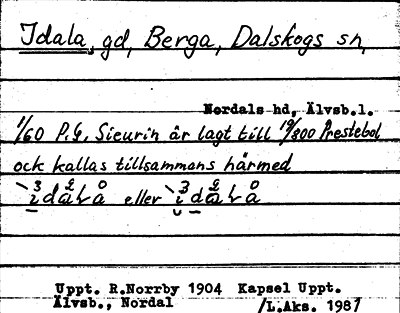 Idala, gd, Berga, Dalskogs sn,
Nordals hd, Älvsb.l.
1/60 P.G. Sieurin är lagt till 19/800 Prestebol
ock kallas tillsammans härmed
eller
Uppt. R.Norrby 1904 Kapsel Uppt.
Älvsb., Nordal /L.Aks. 1987